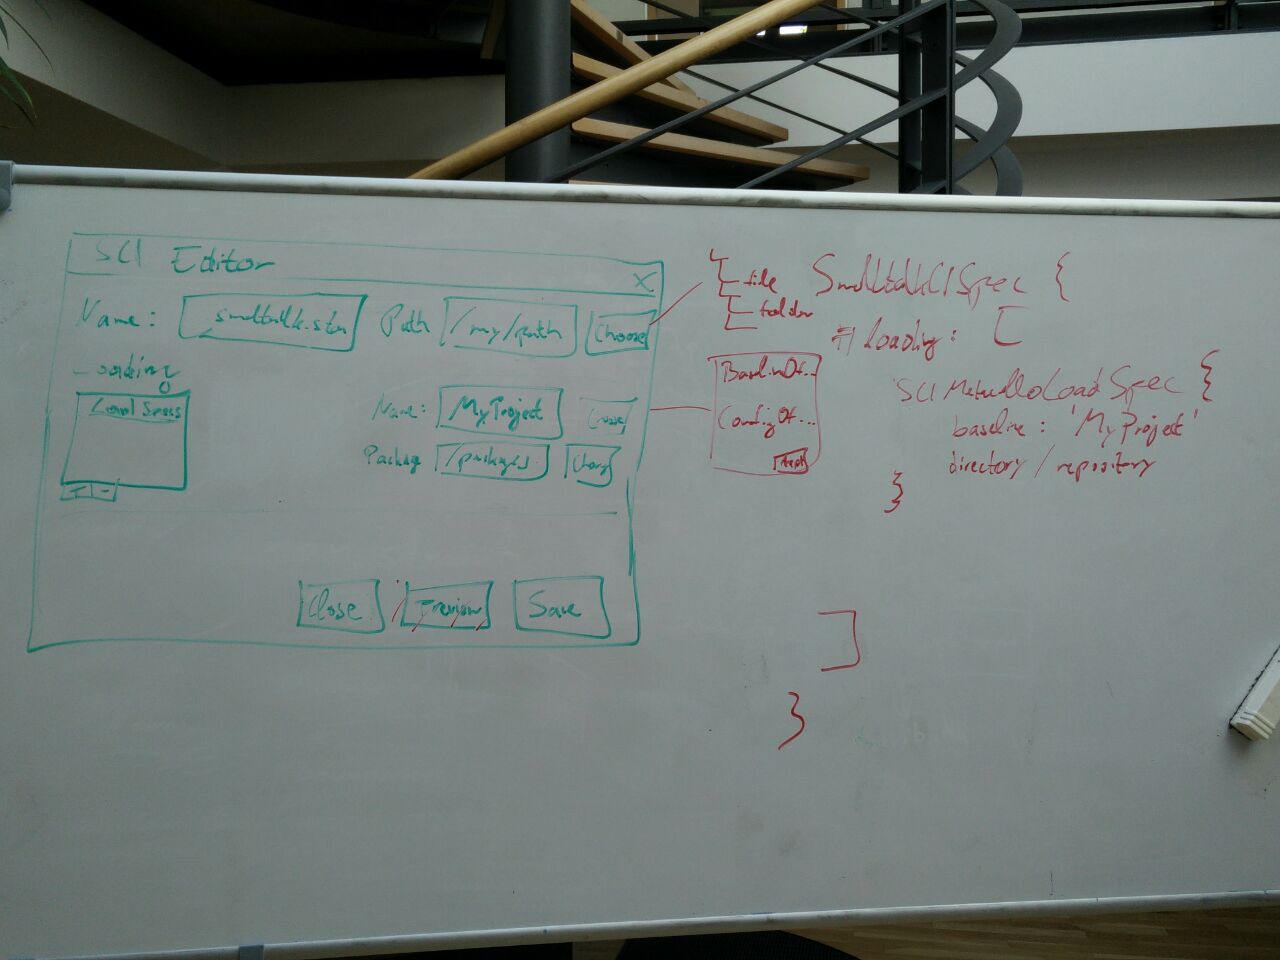 SCI Editor
X
Name: .smalltalk.ston Path /my/path Choose
Loading
Load Specs
+ -
Name: MyProject Choose
Package /packages.
Close Preview Save
file
folder
BaselineOf...
ConfigOf...
SmalltalkCISpec {
#loading: [
SCIMetacelloLoadSpec {
baseline: 'MyProject'
directory / repository
}
]
}